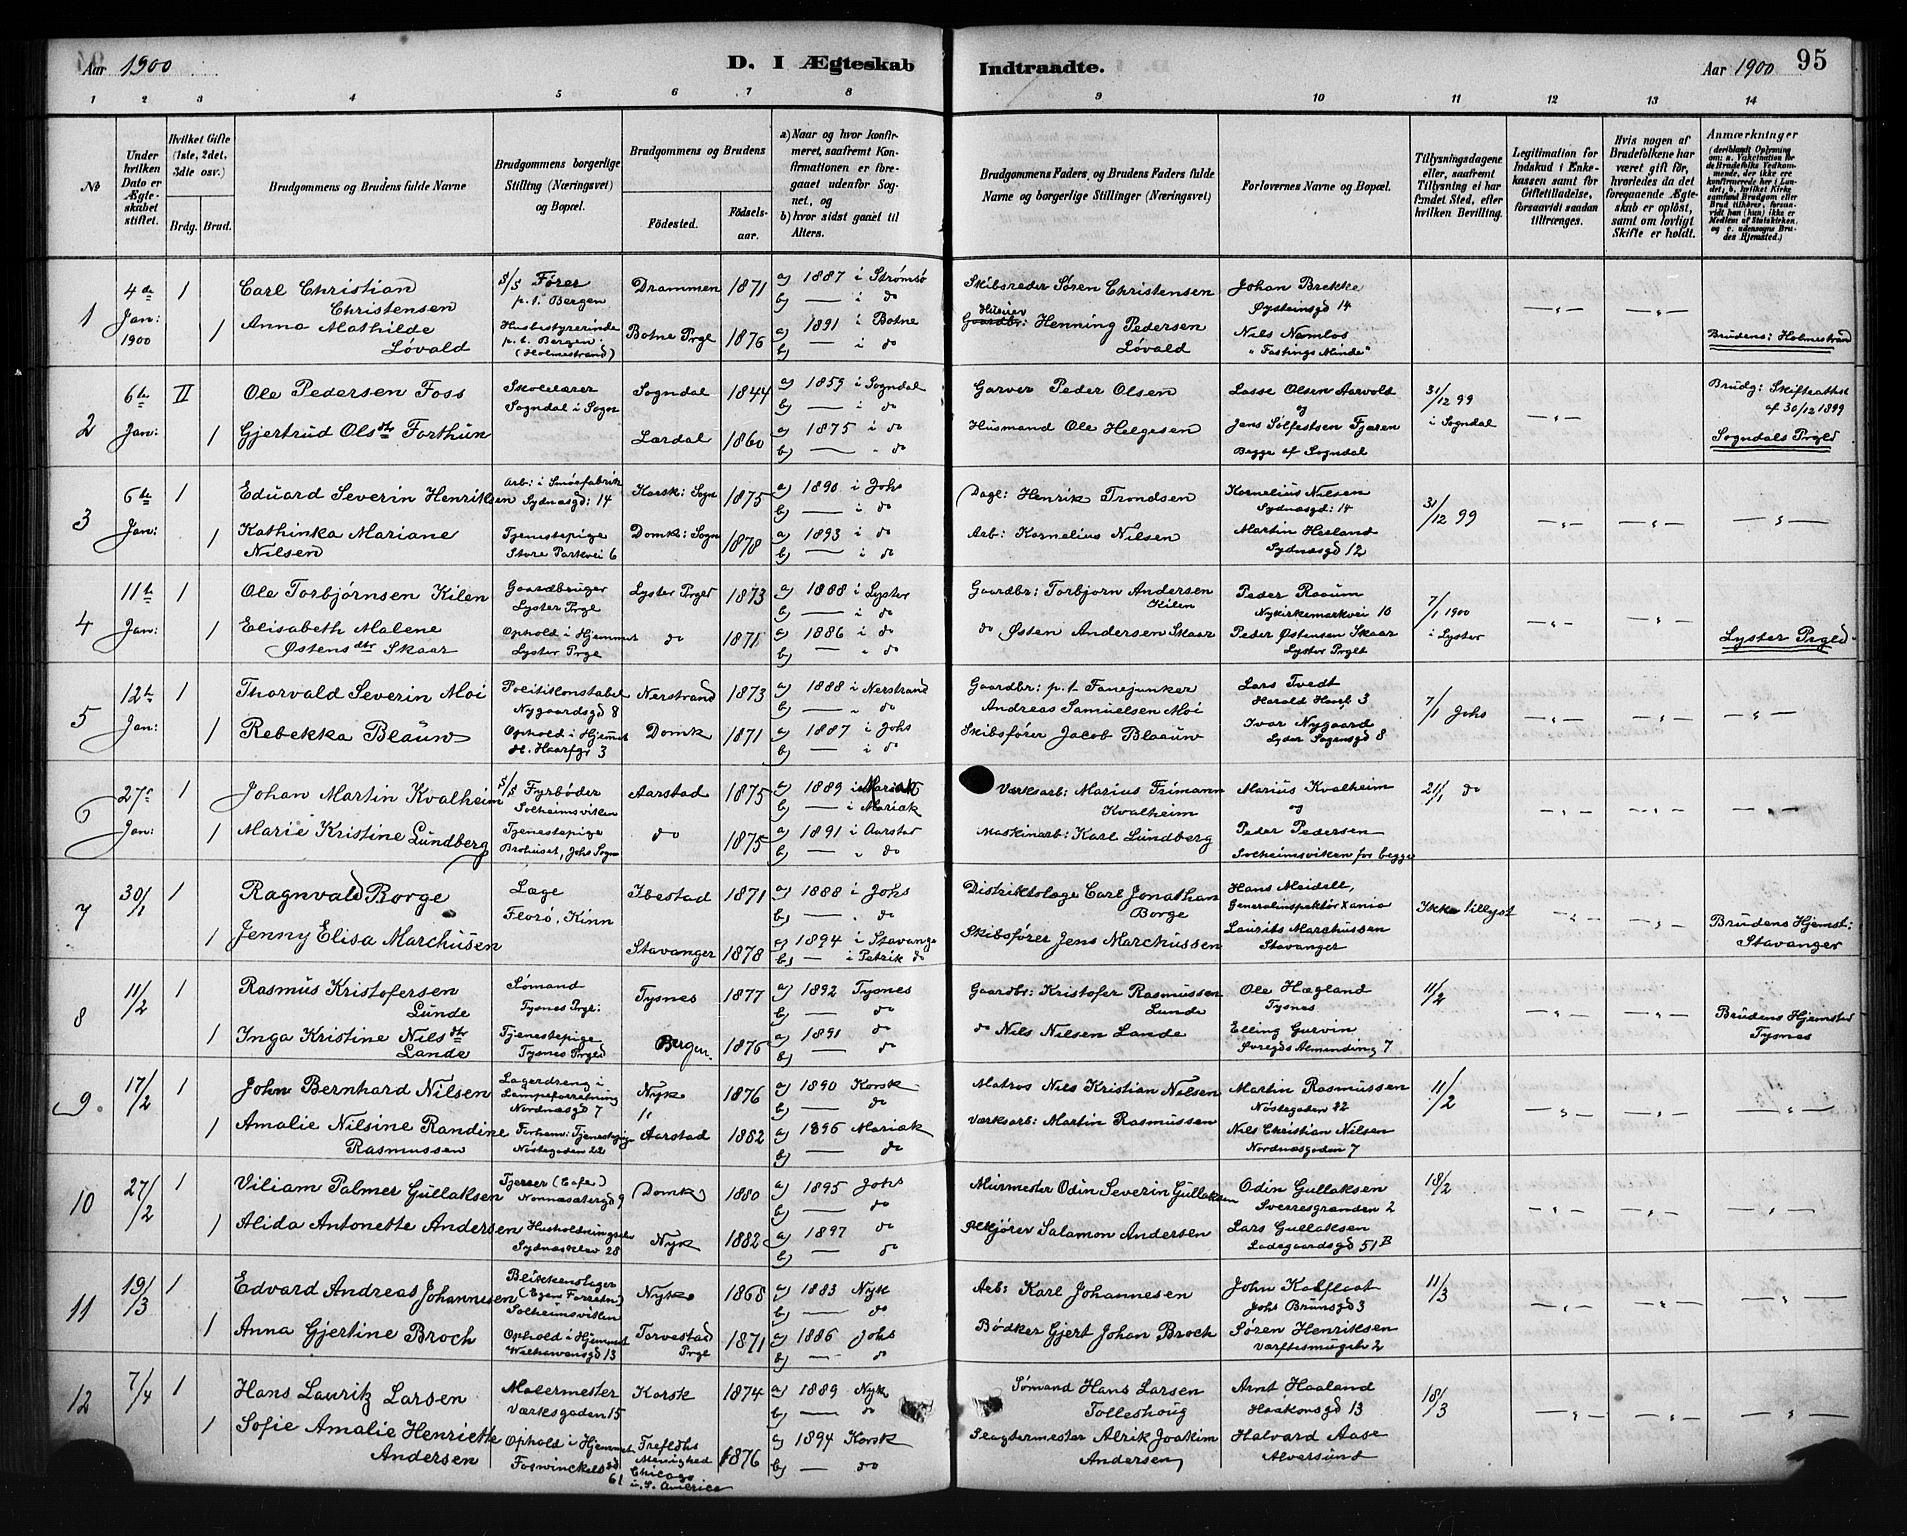 Aar 1900
D. I Ægteskab Indtraadte.
Aar 1900 95
1 2 3 4 5 6 7 8 9 10 11 12 13 14
No
Under hvilken Dato er Ægteskabet stiftet.
Hvilket Gifte (1ste, 2det, 3die osv.)
Brdg. Brud.
Brudgommens og Brudens fulde Navne
Brudgommens borgerlige Stilling (Næringsvei) og Bopæl.
Brudgommens og Brudens
Fødested. Fødselsaar.
a) Naar og hvor konfirmeret, saafremt Konfirmationen er foregaaet udenfor Sognet, og
b) hvor sidst gaaet til Alters.
Brudgommens Faders, og Brudens Faders fulde Navne og borgerlige Stillinger (Næringsvei)
Forlovernes Navne og Bopæl.
Tillysningsdagene eller, saafremt Tillysning ei har fundet Sted, efter hvilken Bevilling.
Legitimation for Indskud i Enkekassen samt for Giftetilladelse, forsaavidt saadan tiltrænges.
Hvis nogen af Brudefolkene har været gift før, hvorledes da det foregaaende Ægteskab er opløst, samt om lovligt Skifte er holdt.
Anmærkninger
1 4de Jan: 1900 1 Carl Christian Christensen S/S Fører p.t. Bergen Drammen 1871 a) 1887 i Strømsø b) — i do Skibsreder Søren Christensen Johan Brekke Øysteinsgd 14
1 Anna Mathilde Løvald Husbestyrerinde p.t. Bergen (Holmestrand) Botne Prgl 1876 a) 1891 i Botne b) — i do Gaardbr: Henning Pedersen Løvald Nils Namlos "Fastings Minde" Brudens: Holmestrand
2 6te Jan: II Ole Pedersen Foss Skolelærer Sogndal i Sogn Sogndal 1844 a) 1859 i Sogndal b) — i do Garver Peder Olsen Lasse Olsen Aarvold og 31/12 99 i Sogndal Brudg: Skifteattest af 30/12 1899
1 Gjertrud Olsdtr Forthun Lærdal 1860 a) 1875 i do b) — " do Husmand Ole Helgesen Jens Sølfestsen Fjæren Begge af Sogndal Sogndals Prgld
3 6te Jan: 1 Eduard Severin Henriksen Arb: i Smørfabrik Sydnæsgd: 14 Korsk: Sogn 1875 a) 1890 i Johs b) — i do Dagl: Henrik Trondsen Kornelius Nilsen Sydnæsgd: 14 31/12 99
1 Kathinka Mariane Nilsen Tjenestepige Store Parkvei 6 Domk: Sogn 1878 a) 1893 i do b) — i do Arb: Kornelius Nilsen Martin Hesland Sydnæsgd 12
4 11te Jan: 1 Ole Torbjørnsen Kilen Gaardbruger Lyster Prgl Lyster Prgld 1873 a) 1888 i Lyster b) — i do Gaardbr: Torbjørn Andersen Kilen Peder Raaum Nykirkemarkvei 10 7/1 1900 i Lyster
1 Elisabeth Malene Østensdtr Skaar Ophold i Hjemmet Lyster Prgl do 1871 a) 1886 i do b) — " do do Østen Andersen Skaar Peder Østensen Skaar Lyster Prgld Lyster Prgld
5 12te Jan: 1 Thorvald Severin Moi Politikonstabel Nygaardsgd 8 Nerstrand 1873 a) 1888 i Nerstrand b) — " do Gaardbr: p.t. Fanejunker Andreas Samuelsen Moi Lars Tvedt Harald Haarf. 3 7/1 Johs
1 Rebekka Blauw Ophold i Hjemmet H. Haarfgr 3 Domk 1871 a) 1887 i Johs b) — i do Skibsfører Jacob Blaauw Ivar Nygaard Lyder Sagensgd 8
6 27de Jan: 1 Johan Martin Kvalheim S/S Fyrbøder Solheimsviken Aarstad 1875 a) 1889 i Mariak b) — i Mariak Værksarb: Marius Frimann Kvalheim Marius Kvalheim og 21/1 do
1 Marie Kristine Lundberg Tjenestepige Brohuset, Johs Sogn do 1875 a) 1891 i Aarstad b) — " do Maskinarb: Karl Lundberg Peder Pedersen Solheimsviken for begge
7 30/1 1 Ragnvald Borge Læge Florø, Kinn Ibestad 1871 a) 1888 i Johs b) — " do Distriktslæge Carl Jonathan Borge Hans Meidell, Generalinspektør Xania Ikke tillyst
1 Jenny Elisa Marchussen Stavanger 1878 a) 1894 i Stavanger b) — i Petrik do Skibsfører Jens Marchussen Laurits Marchussen Stavanger Brudens Hjemst: Stavanger
8 11/2 1 Rasmus Kristofersen Lunde Sømand Tysnes Prgl: Tysnes 1877 a) 1892 Tysnes b) — do Gaardbr: Kristofer Rasmussen Lunde Ole Hægland Tysnes 11/2
1 Inga Kristine Nilsdtr Lande Tjenestepige Tysnes Prgld Bergen. 1876 a) 1891 do b) — do do Nils Nilsen Lande Elling Gurvin Øvregds Almending 7 Brudens Hjemsted Tysnes
9. 17/2 1 John Bernhard Nilsen Lagerdreng i Lampeforretning Nordnæsgd 7 Nyk 1876 a) 1890 Korsk b) — do Matros Nils Kristian Nilsen Martin Rasmussen Nøstegaden 22 11/2
1 Amalie Nilsine Randine Rasmussen Forhenv: Tjenestepige Nøstegaden 22 Aarstad 1882 a) 1896 Mariak b) — do Værksarb: Martin Rasmussen Nils Christian Nilsen Nordnæsgaden 7
10 27/2 1 Viliam Palmer Gullaksen Tjener (Cafe) Nonnesætergd 9 Domk 1880 a) 1895 Johs b) — do Murmester Odin Severin Gullaksen Odin Gullaksen Sverresgranden 2 18/2
1 Alida Antonette Andersen Sydneskleiv 28 Nyk 1882 a) 1897 do b) — do Salamon Andersen Lars Gullaksen Ladegaardsgd 51 B
11 19/3 1 Edvard Andreas Johannesen Blikkenslager (Egen Forretn) Solheimsviken Nyk 1868 a) 1883 Nyk b) — do Arb: Karl Johannesen John Kalflaat Johs Brunsgd 3 11/3
1 Anna Gjertine Broch Ophold i Hjemmet Welhavensgd 13 Torvestad Prgl 1871 a) 1886 Johs b) — do Bødker Gjert Johan Broch Søren Henriksen Værftesmuget 2
12 7/4 1 Hans Lauritz Larsen Malermester Værksgaden 15 Korsk 1874 a) 1889 Nyk b) — do Sømand Hans Larsen Tolleshoug Arnt Haaland Haakonsgd 13 18/3
1 Sofie Amalie Henriette Andersen Ophold i Hjemmet Foswinckelsgd 61 Trefldhs Menighed Chicago i N. America 1876 a) 1894 Korsk b) — do Slagtermester Alrik Joakim Andersen Halvard Aase Alversund